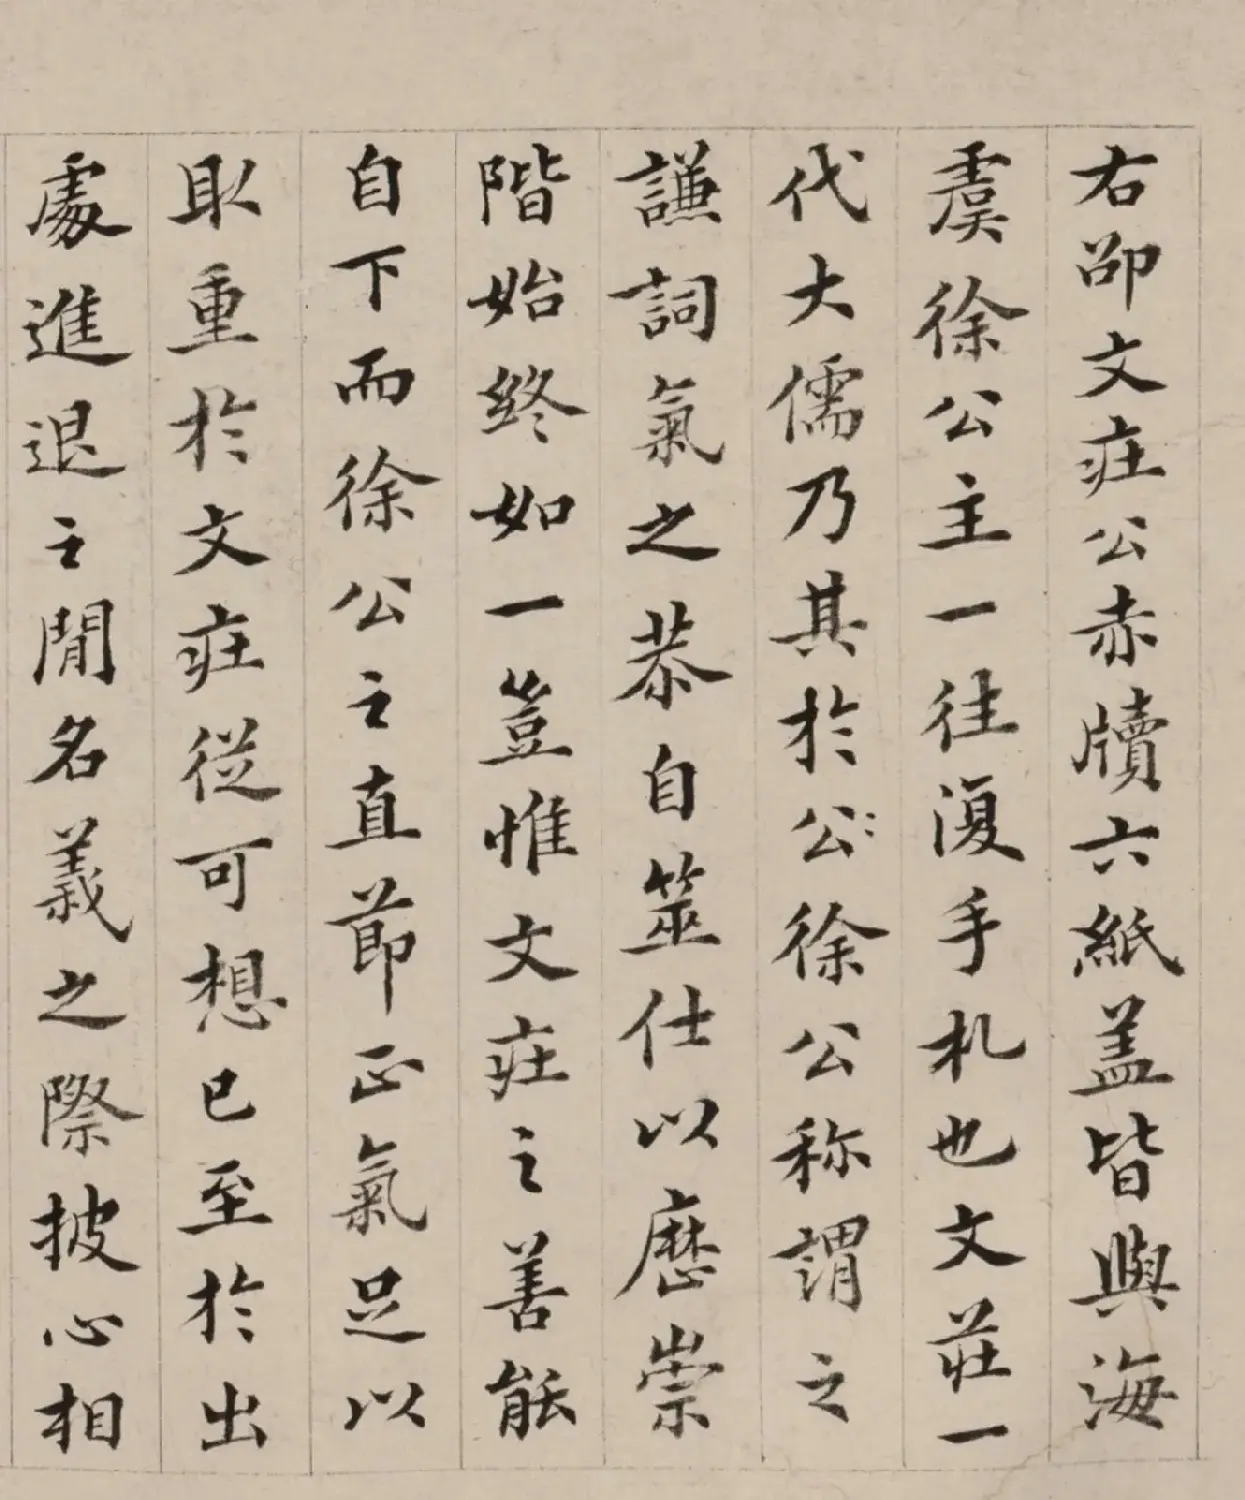 右邵文莊公赤牘六紙蓋皆與海
虞徐公主一往復手札也文莊一
代大儒乃其於公〻徐公称謂之
謙詞氣之恭自筮仕以歷崇
階始終如一豈惟文莊之善能
自下而徐公之直節正氣足以
取重於文莊從可想已至於出
處進退之間名義之際披心相